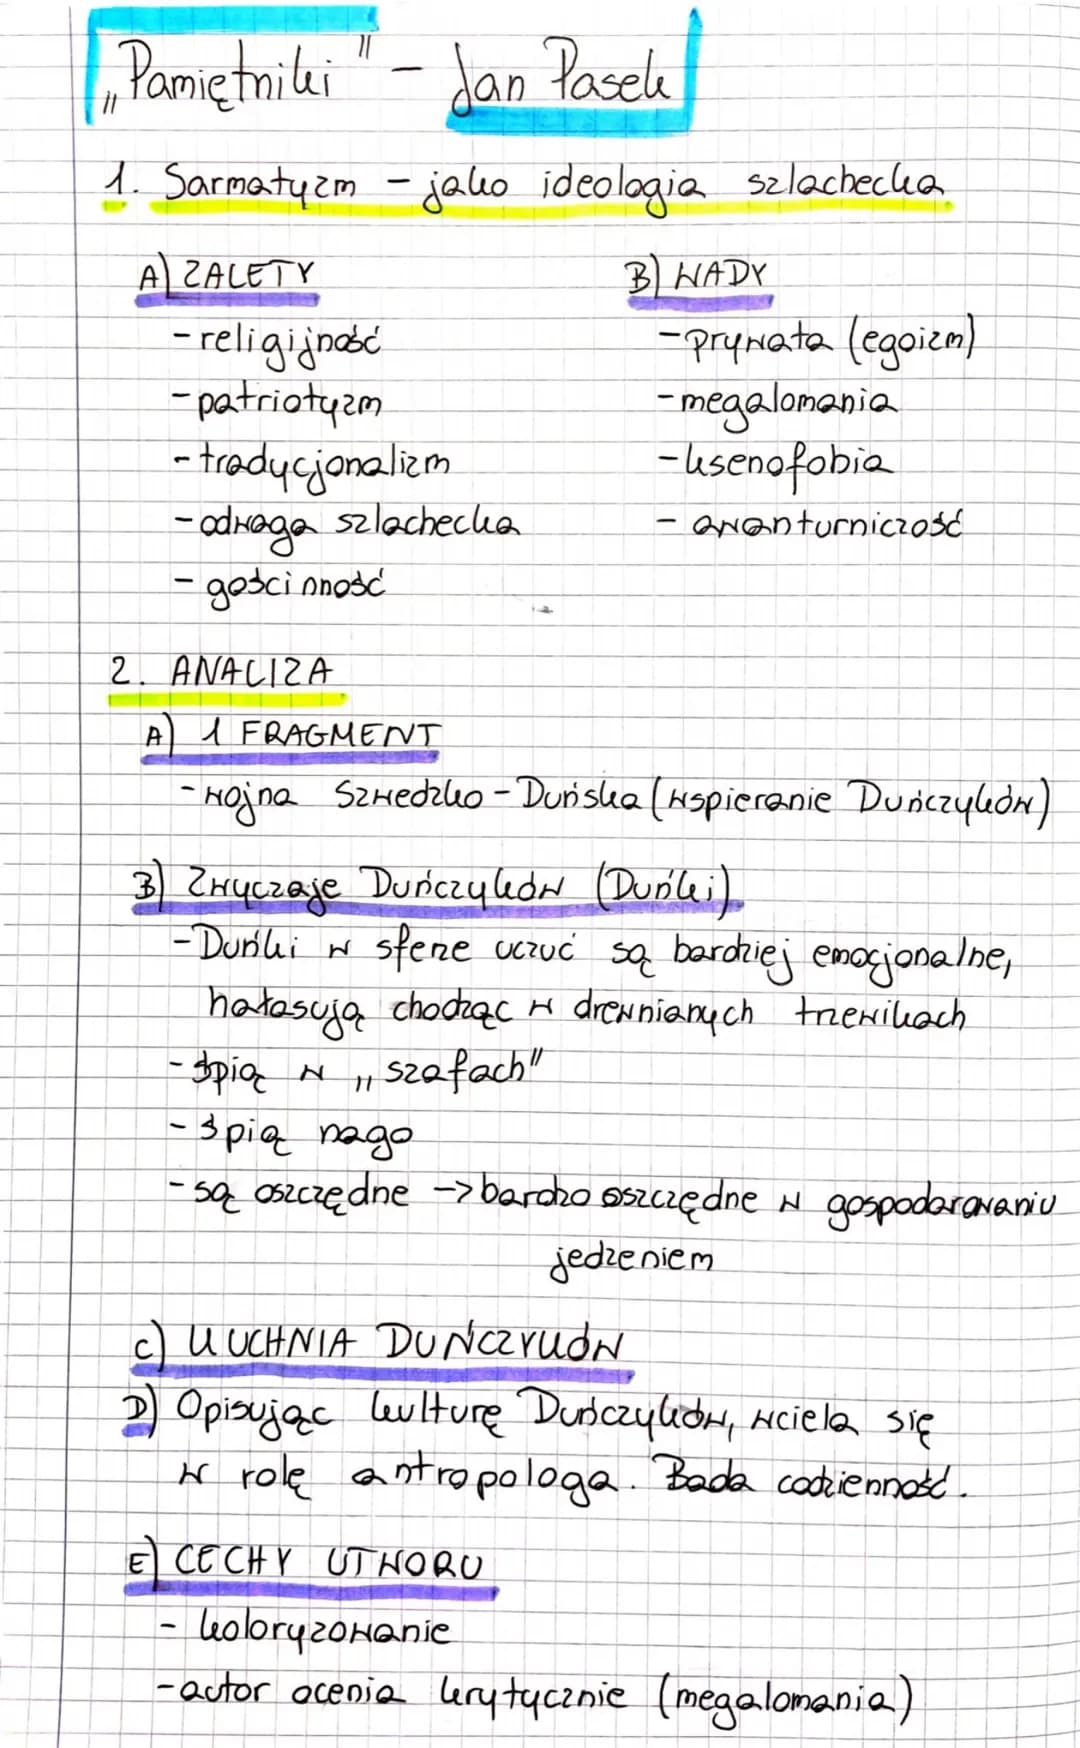 „Pamiętniki" - Jan Pasek
1. Sarmatyzm - jako ideologia szlachecka
A) ZALETY
- religijność
- patriotyzm
- tradycjonalizm
- odwaga szlachecka
- gościnność
B) WADY
- prywata (egoizm)
- megalomania
- ksenofobia
- awanturniczość
2. ANALIZA
A) 1 FRAGMENT
- wojna Szwedzko - Duńska (wspieranie Duńczyków)
B) Zwyczaje Duńczyków (Dunki)
- Dunki w sferze uczuć są bardziej emocjonalne,
hałasują chodząc w drewnianych trzewikach
- śpią w „szafach"
- śpią nago
- są oszczędne -> bardzo oszczędne w gospodarowaniu
jedzeniem
C) KUCHNIA DUŃCZYKÓW
D) Opisując kulturę Duńczyków, wciela się
w rolę antropologa. Bada codzienność.
E) CECHY UTWORU
- koloryzowanie
- autor ocenia krytycznie (megalomania)